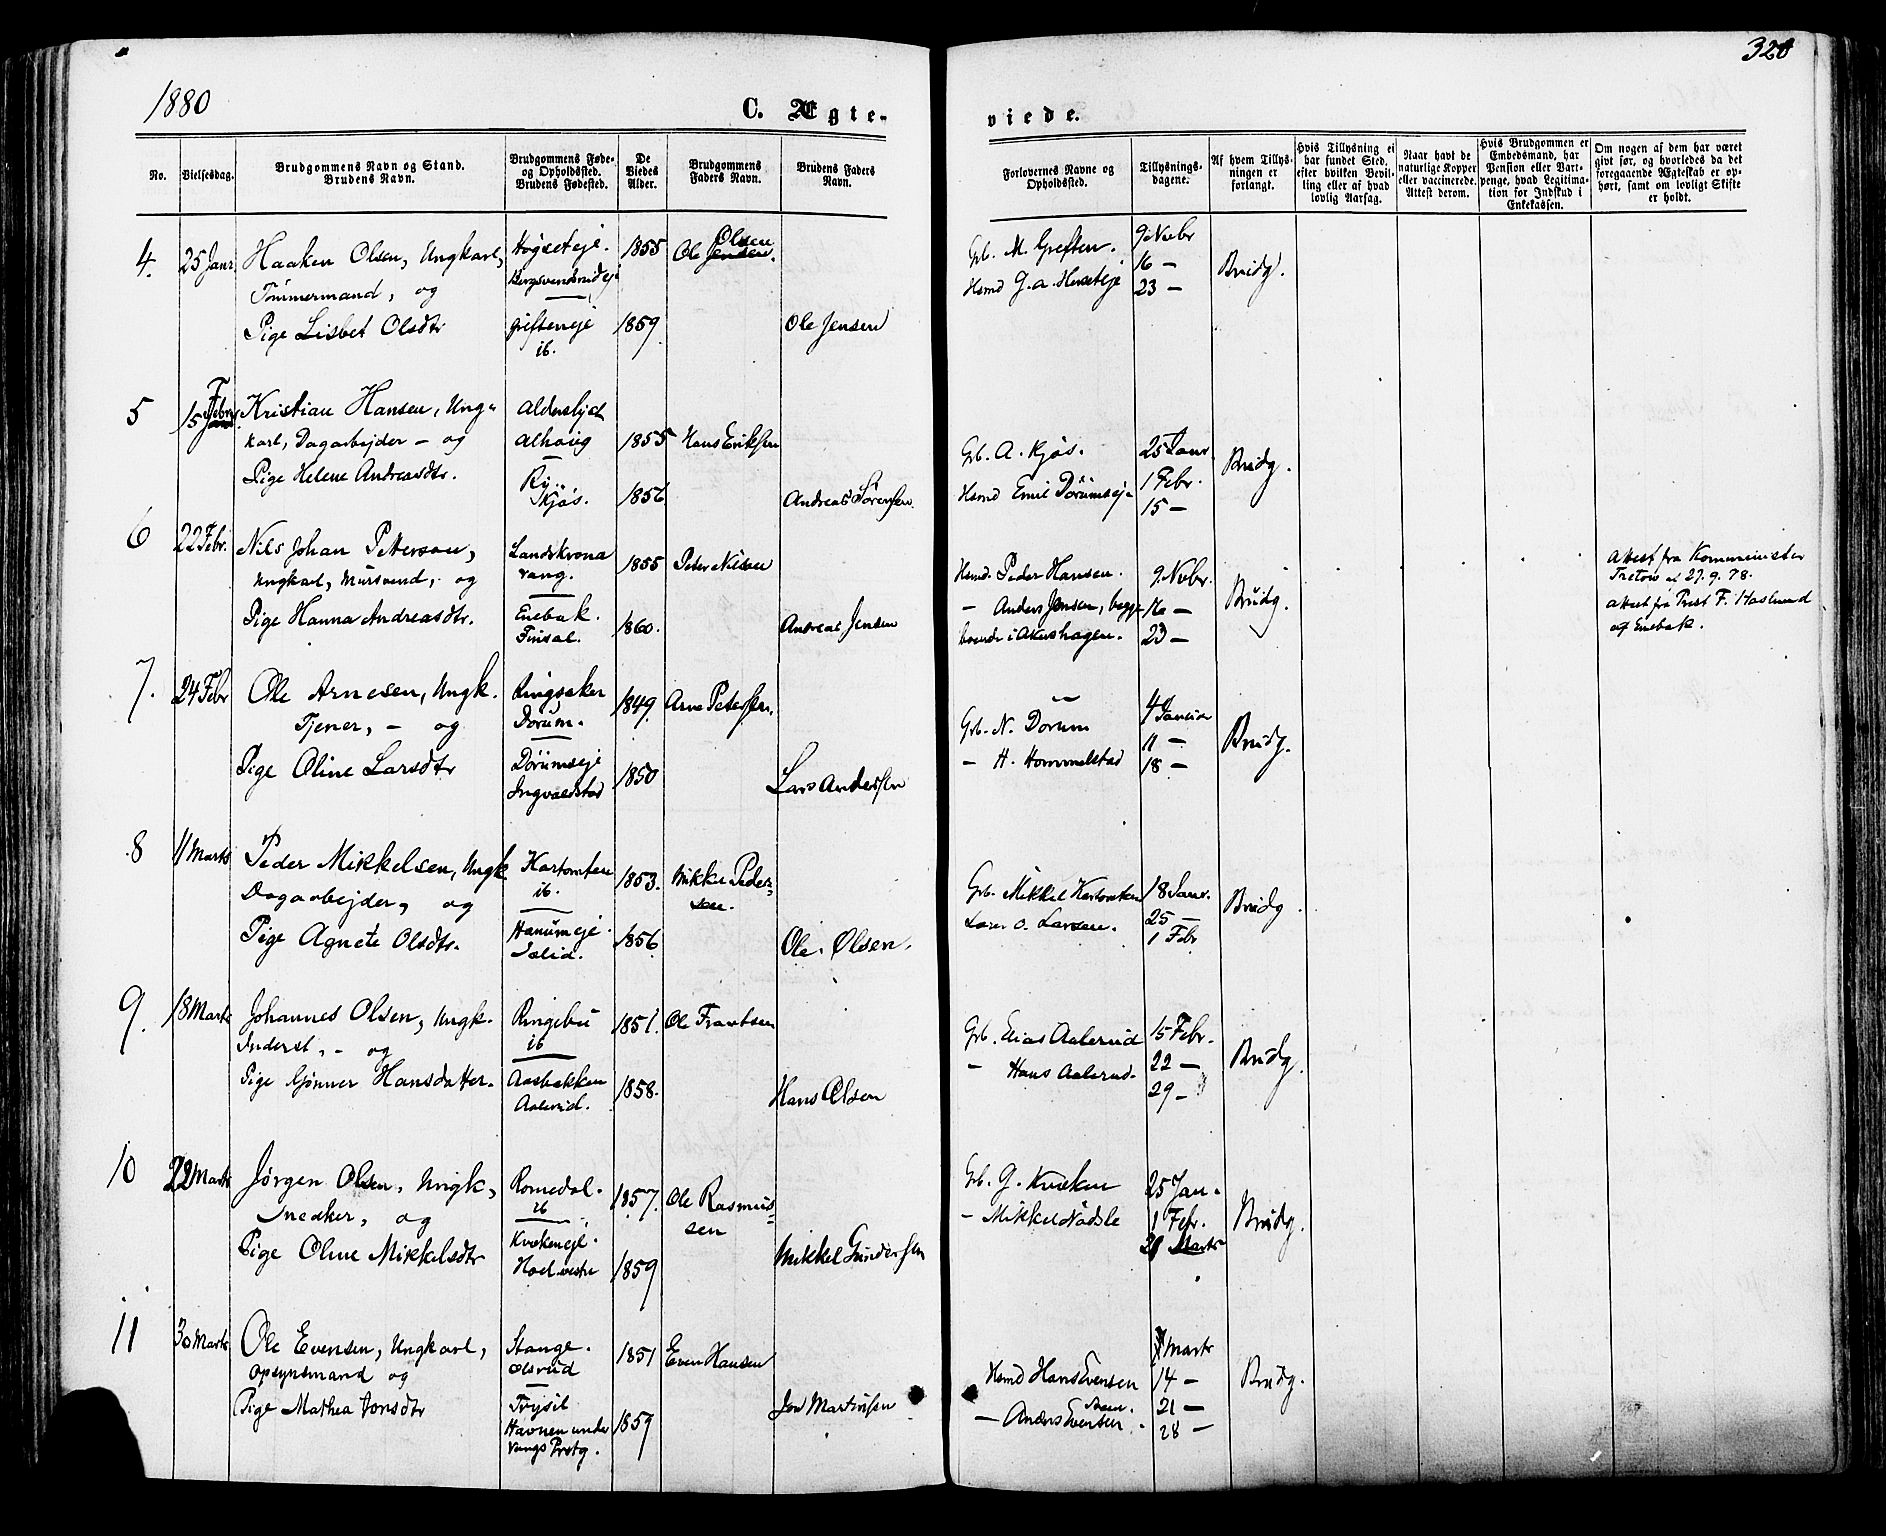 320
1880
C. Ægte-
viede.
No.
Vielsesdag.
Brudgommens Navn og Stand.
Brudens Navn.
Brudgommens Føde-
og Opholdsted.
Brudens Fødested.
De
Viedes
Alder.
Brudgommens
Faders Navn.
Brudens Faders
Navn.
Forlovernes Navne og
Opholdsted.
Tillysnings-
dagene.
Af hvem Tillys-
ningen er
forlangt.
Hvis Tillysning ei
har fundet Sted,
efter hvilken Bevil-
ling eller af hvad
lovlig Aarsag.
Naar havt de
naturlige Kopper
eller vaccinerede.
Attest derom.
Hvis Brudgommen er
Embedsmand, har
Pension eller Vart-
penge, hvad Legitima-
tion for Indskud i
Enkekassen.
Om nogen af dem har været
givt før, og hvorledes da det
foregaaende Ægteskab er op-
hørt, samt om lovligt Skifte
er holdt.
4. 25 Janr Haaken Olsen, Ungkarl,
Tömmermand, og
Pige Lisbet Olsdtr
Høgseteje.
Bergsvendsrudeje
Grefteneje
ib.
1855
1859
Ole Olsen
Ole Jensen
Grb. M. Greften.
Hsmd G. A.
9 Novbr
16 —
23 —
Brudg.
5 15 Febr Kristian Hansen, Ung-
karl, Dagarbejder — og
Pige Helene Andreasdtr.
Alderslyst
Alhoug
Ry
Kjös.
1855
1856
Hans Eriksen
Andreas Sörensen
Grb. A. Kjös.
Hsmd Emil Dörumseje
25 Janr.
1 Febr.
15 —
Brudg.
6 22 Febr. Nils Johan Petterson,
Ungkarl, Mursvend, og
Pige Hanna Andreasdtr.
Landskrona
Vang.
Enebak.
Finsal.
1855
1860.
Peter Nilsen
Andreas Jensen
Hsmd. Peder Hansen.
— Anders Jensen, begge
boende i Akershagen.
9 Novbr.
16 —
23 —
Brudg.
Attest fra Kommunister
Tretow af 27.9.78.
Attest fra Prest F. Haslund
af Enebak.
7. 24 Febr Ole Arnesen, Ungk.
Tjener, — og
Pige Oline Larsdtr
Ringsaker
Dorum.
Dörumseje
Ingvaldstad
1849.
1850
Arne Petersen.
Lars Andersen
Grb. N. Dorum
— H. Hommelstad
4 Januar
11 —
18 —
Brudg.
8 11 Marts Peder Mikkelsen, Ungk
Dagarbejder, og
Pige Agnete Olsdtr.
Kastbraten
ib.
Hanumeje.
Solid.
1853.
1856
Mikkel Peder-
sen.
Ole Olsen.
Grb. Mikkel Kastbraten
Lars O. Larsen.
18 Janr.
25 —
1 Febr
Brudg.
9. 18 Marts Johannes Olsen, Ungk.
Inderst, — og
Pige Gönner Hansdatter.
Ringebu
ib
Aasbakken
Aalerud.
1851.
1858.
Ole Frantsen
Hans Olsen
Grb. Elias Aalerud
— Hans Aalerud.
15 Febr.
22 —
29 —
Brudg.
10 22 Marts Jörgen Olsen, Ungk,
Snedker, og
Pige Oline Mikkelsdtr
Romedal.
ib
Kvækeneje.
Hoel vestre
1857.
1859
Ole Rasmus-
sen
Mikkel Gundersen
Grb. G. Kvæken
— Mikkel Nödsle
25 Jan.
1 Febr.
21 Marts
Brudg.
11 30 Marts Ole Evensen, Ungkarl,
Opsynsmand og
Pige Mathea Jonsdtr
Stange.
Olsrud
Trysil
Havnen under
Vangs Prstg.
1851
1859
Even Hansen
Jon Martinsen
Hsmd Hans Evensen
— Anders Evensen
7 Marts
14 —
21 —
28 —
Brudg.